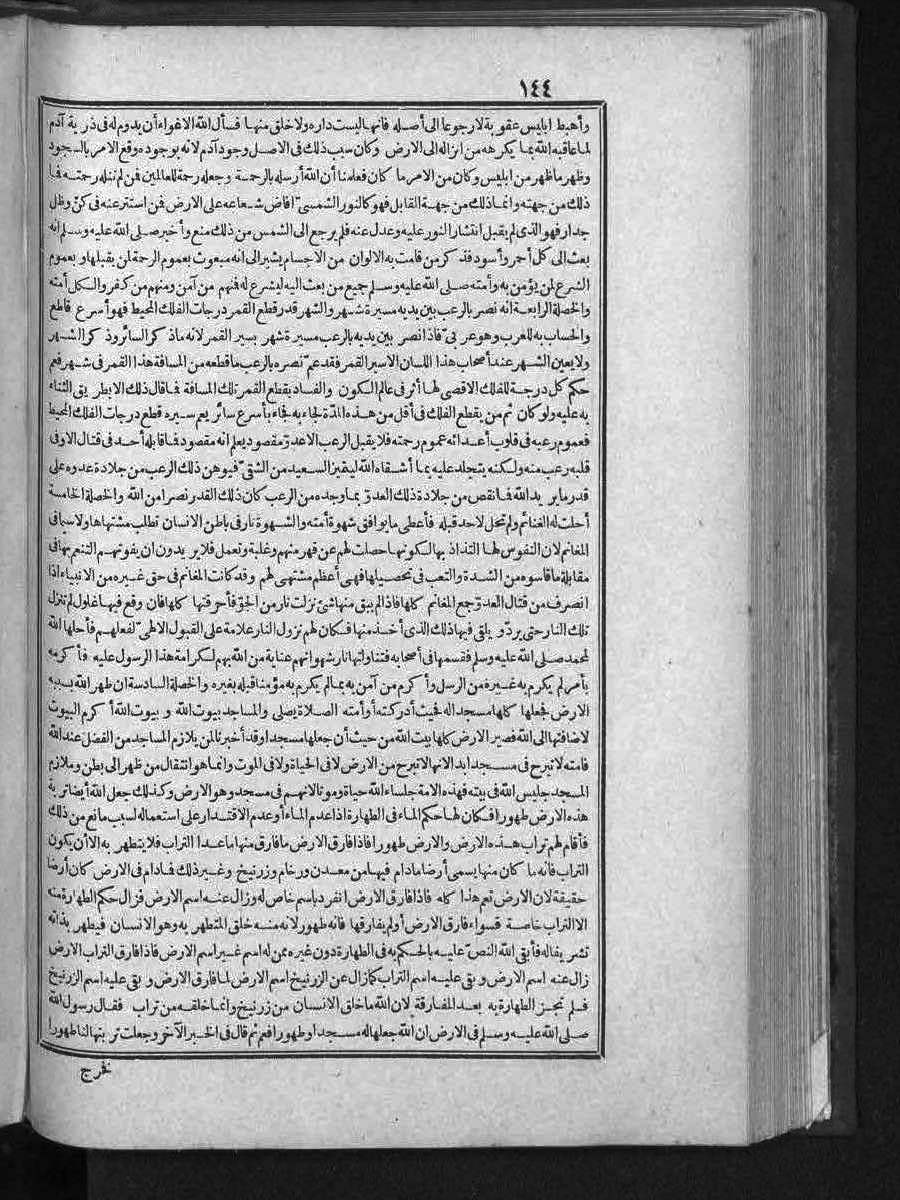 ١٤٤
وأهبط ابليس عقوبة لارجوعا الى أصله فانها ليست داره ولا خلق منها فسأل الله الاغواء أن يدوم له فى ذرية آدم
لما عاقبه الله بما يكرهه من انزاله الى الارض وكان سبب ذلك فى الاصل وجود آدم لانه بوجوده وقع الامر بالسجود
وظهر ما ظهر من ابليس وكان من الامر ما كان فعلمنا أن الله أرسله بالرحمة وجعله رحمة للعالمين فن لم تنله رحمته فما
ذلك من جهته وانما ذلك من جهة القابل فهو كالنور الشمسى أفاض شعاعه على الارض فن استتر عنه فى كن وظل
جدار فهو الذى لم يقبل انتشار النور عليه وعدل عنه فلم يرجع الى الشمس من ذلك منع وأخبر صلى الله عليه وسلم أنه
بعث الى كل أحمر وأسود فذكر من قامت به الالوان من الاجسام يشير الى أنه مبعوث بعموم الرحمة لمن يقبلها و بعموم
الشرع لمن يؤمن به وأمته صلى الله عليه وسلم جميع من بعث اليه ليشرع له فنهم من آمن ومنهم من كفر والكل أمته
والخصلة الرابعة انه نصر بالرعب بين يديه مسيرة شهر والشهر قدر قطع القمر درجات الفلك المحيط فهو أسرع قاطع
والحساب به للعرب وهو عربى فاذا نصر بين يديه بالرعب مسيرة شهر بسير القمر لانه ما ذكر السائر وذكر الشهر
ولا يعين الشهر عند أصحاب هذا اللسان الا سير القمر فقد عم نصره بالرعب ما قطعه من المسافة هذا القمر فى شهر فعم
حكم كل درجة للفلك الاقصى لها أثر فى عالم الكون والفساد بقطع القمر تلك المسافة فما قال ذلك الا بطريق الثناء
به عليه ولو كان ثم من يقطع الفلك فى أقل من هذه المدة لجاء به فجاء بأسرع سائر يعم سيره قطع درجات الفلك المحيط
فعموم رعبه فى قلوب أعدائه عموم رحمته فلا يقبل الرعب الا عدو مقصود يعلم انه مقصود فما قابله أحد فى قتال الا وفى
قلبه رعب منه ولكنه يتجلد عليه بما أشقاه الله ليتميز السعيد من الشقى فيوهن ذلك الرعب من جلادة عدوه على
قدر ما يريد الله فما نقص من جلادة ذلك العدو بما وجده من الرعب كان ذلك القدر نصرا من الله والخصلة الخامسة
أحلت له الغنائم ولم تحل لاحد قبله فأعطى ما يوافق شهوة أمته والشهوة نار فى باطن الانسان تطلب مشتهاها ولا سيما فى
المغانم لان النفوس لها التذاذ بها لكونها حصلت لهم عن قهر منهم وغلبة وتعمل فلا يريدون ان يفوتهم التنعم بها فى
مقابلة ما قاسوه من الشدة والتعب فى تحصيلها فهى أعظم مشتهى لهم وقد كانت المغانم فى حق غيره من الانبياء اذا
انصرف من قتال العدو جمع المغانم كلها فاذا لم يبق منها شئ نزلت نار من الجو فأحرقتها كلها فان وقع فيها غلول لم تنزل
تلك النار حتى يرد و يلقى فيها ذلك الذى أخذ منها فكان لهم نزول النار علامة على القبول الالهى لفعلهم فأحلها الله
لمحمد صلى الله عليه وسلم فقسمها فى أصحابه فتناولتها نار شهواتهم عناية من الله بهم لكرامة هذا الرسول عليه فأكرمه
بأمر لم يكرم به غيره من الرسل وأكرم من آمن به بما لم يكرم به مؤمنا قبله بغيره والخصلة السادسة ان طهر الله بسببه
الارض فجعلها كلها مسجدا له فحيث أدركته أو أمته الصلاة يصلى والمساجد بيوت الله و بيوت الله أكرم البيوت
لاضافتها الى الله فصير الارض كلها بيت الله من حيث أن جعلها مسجدا وقد أخبرنا لمن يلازم المساجد من الفضل عند الله
فامته لا تبرح فى مسجد أبدا لانها لا تبرح من الارض لا فى الحياة ولا فى الموت وانما هو انتقال من ظهر الى بطن وملازم
المسجد جليس الله فى بيته فهذه الامة جلساء الله حياة وموتا لانهم فى مسجد وهو الارض وكذلك جعل الله أيضا تربة
هذه الارض طهورا فكان لها حكم الماء فى الطهارة اذا عدم الماء أو عدم الاقتدار على استعماله لسبب مانع من ذلك
فأقام لهم تراب هذه الارض والارض طهورا فاذا فارق الارض ما فارق منها ما عدا التراب فلا يتطهر به الا أن يكون
التراب فانه ما كان منها يسمى أرضا مادام فيها من معدن ورخام وزرنيخ وغير ذلك فمادام فى الارض كان أرضا
حقيقة لان الارض تعم هذا كله فاذا فارق الارض انفرد باسم خاص له وزال عنه اسم الارض فزال حكم الطهارة منه
الا التراب خاصة فسواء فارق الارض أو لم يفارقها فانه طهور لانه منه خلق المتطهر به وهو الانسان فيطهر بذاته
تشريفا له فأبقى الله النص عليه بالحكم به فى الطهارة دون غيره ممن له اسم غير اسم الارض فاذا فارق التراب الارض
زال عنه اسم الارض و بقى عليه اسم التراب كما زال عن الزرنيخ اسم الارض لما فارق الارض و بقى عليه اسم الزرنيخ
فلم تجز الطهارة به بعد المفارقة لان الله ما خلق الانسان من زرنيخ وانما خلقه من تراب فقال رسول الله
صلى الله عليه وسلم فى الارض ان الله جعلها له مسجدا وطهورا فعم ثم قال فى الخبر الآخر وجعلت تربتها لنا طهورا
فخرج